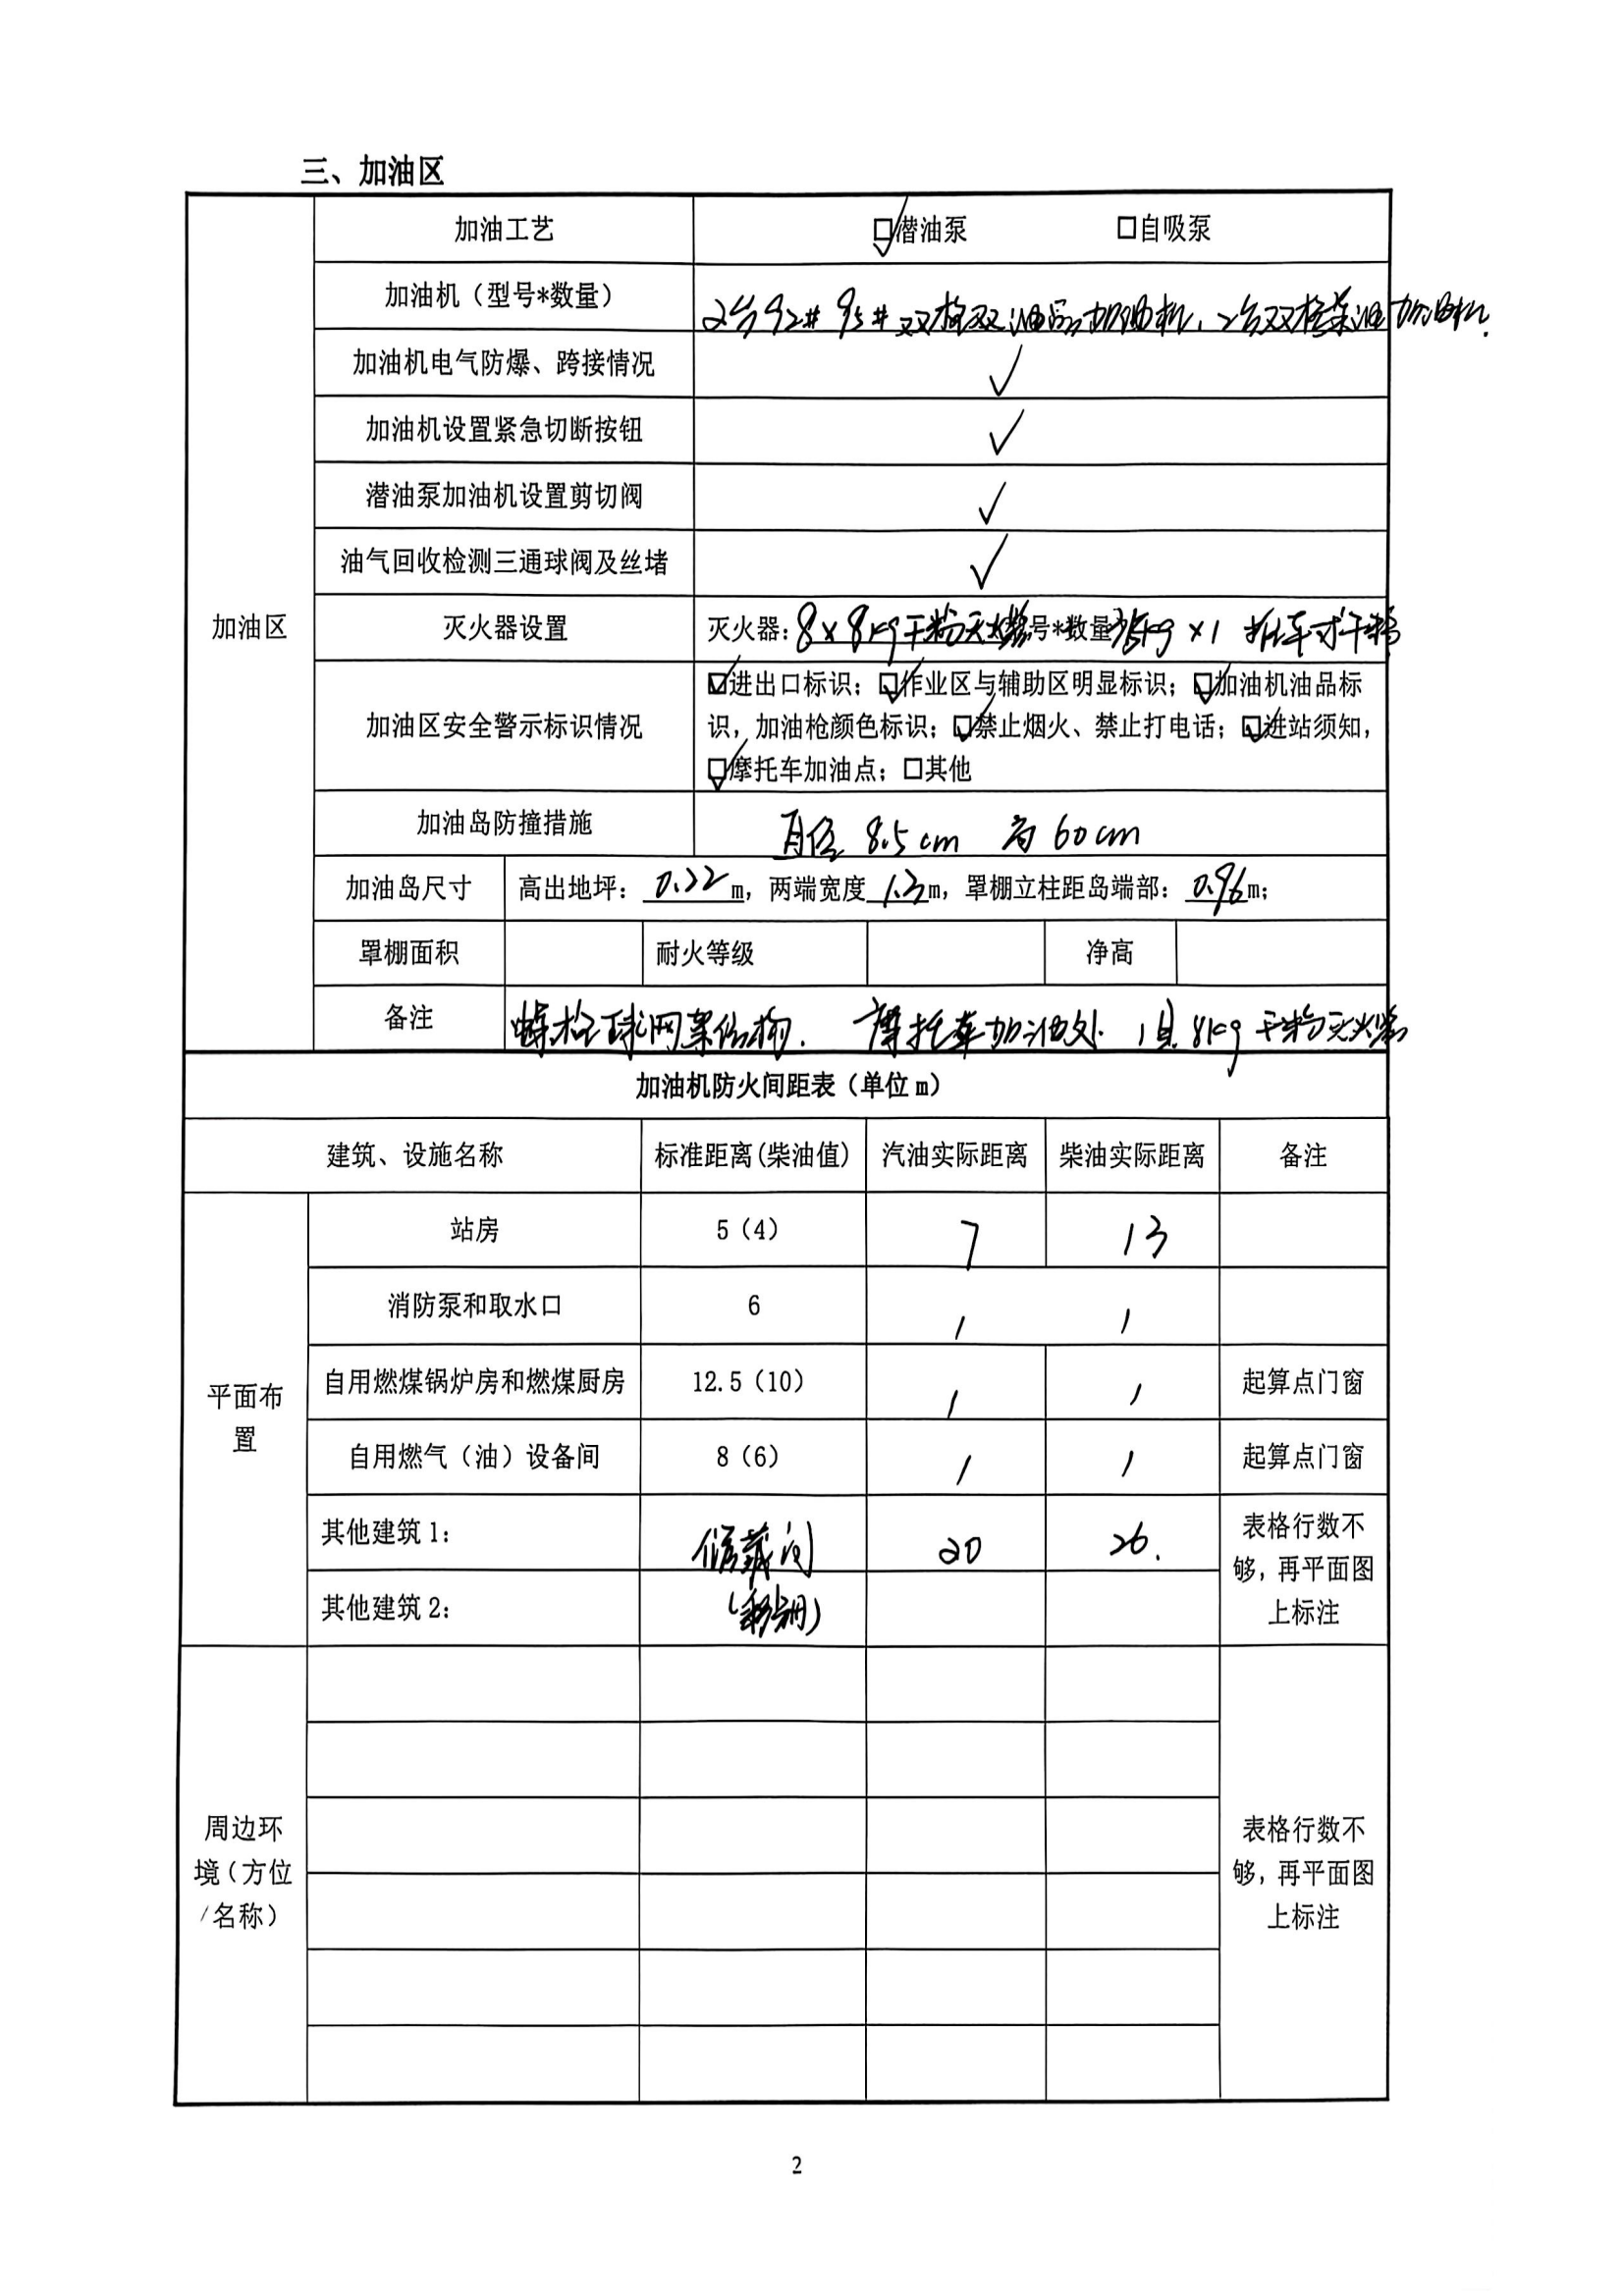 三、加油区
加油区
加油工艺 ☑潜油泵 □自吸泵
加油机（型号*数量） 2台92# 95#双枪双油品加油机、2台双枪柴油加油机.
加油机电气防爆、跨接情况 ✓
加油机设置紧急切断按钮 ✓
潜油泵加油机设置剪切阀 ✓
油气回收检测三通球阀及丝堵 ✓
灭火器设置 灭火器：8×8kg干粉灭火器 号*数量 35kg×1 推车式干粉
加油区安全警示标识情况 ☑进出口标识；☑作业区与辅助区明显标识；☑加油机油品标
识，加油枪颜色标识；☑禁止烟火、禁止打电话；☑进站须知，
☑摩托车加油点；□其他
加油岛防撞措施 直径 8.5cm 高 60cm
加油岛尺寸 高出地坪：0.22m，两端宽度1.3m，罩棚立柱距岛端部：0.96m；
罩棚面积 耐火等级 净高
备注 螺栓球网架结构. 摩托车加油处 1具8kg干粉灭火器
加油机防火间距表（单位m）
建筑、设施名称 标准距离(柴油值) 汽油实际距离 柴油实际距离 备注
平面布
置
站房 5（4） 7 13
消防泵和取水口 6 / /
自用燃煤锅炉房和燃煤厨房 12.5（10） / / 起算点门窗
自用燃气（油）设备间 8（6） / / 起算点门窗
其他建筑1： 间 20 26.
其他建筑2：
表格行数不
够，再平面图
上标注
周边环
境（方位
/名称）
表格行数不
够，再平面图
上标注
2